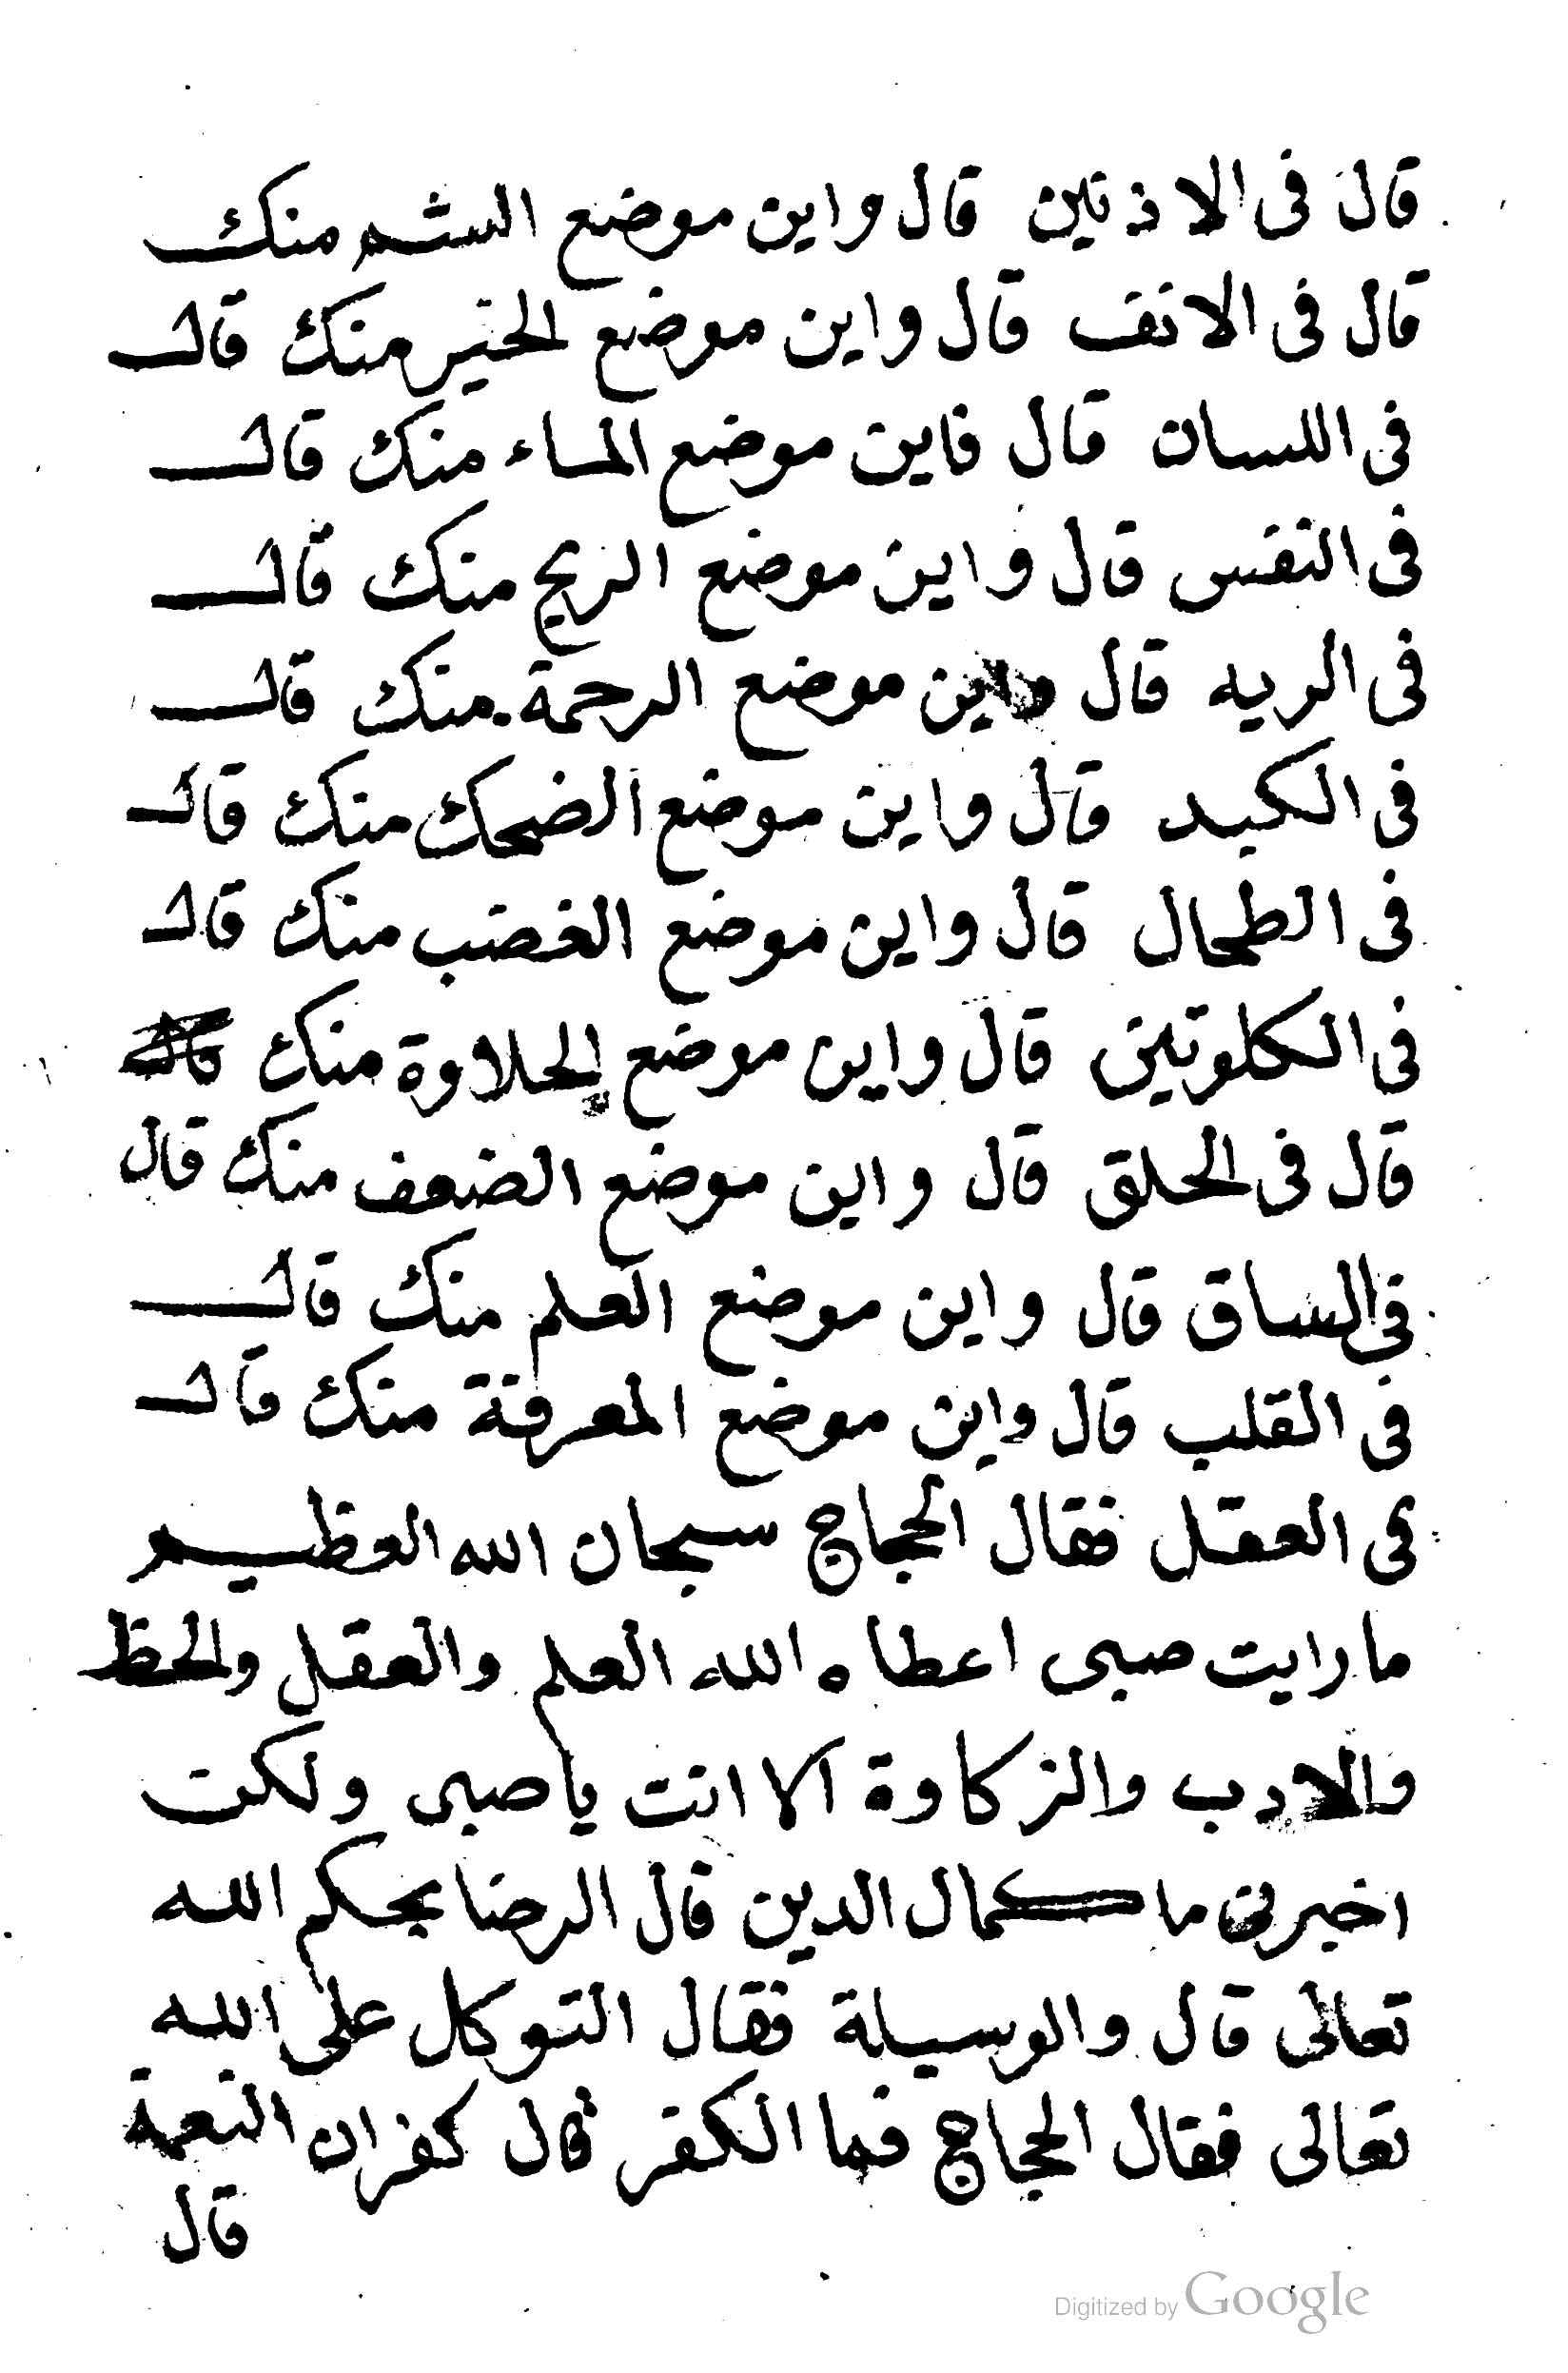 قال فى الاذنين قال واين موضع الشم منك
قال فى الانف قال واين موضع الخير منك قال
فى اللسان قال فاين موضع الماء منك قال
فى النفس قال واين موضع الريح منك قال
فى الريه قال واين موضع الرحمة منك قال
فى الكبد قال واين موضع الضحك منك قال
فى الطحال قال واين موضع الغضب منك قال
فى الكلوتين قال واين موضع الحلاوة منك
قال فى الحلق قال واين موضع الضعف منك قال
فى الساق قال واين موضع العلم منك قال
فى القلب قال واين موضع المعرفة منك قال
فى العقل فقال الحجاج سبحان الله العظيم
ما رايت صبى اعطاه الله العلم والعقل والحظ
والادب والزكاوة الا انت يا صبى ولكن
اخبرنى ما كمال الدين قال الرضا بحكم الله
تعالى قال والوسيلة فقال التوكل على الله
تعالى فقال الحجاج فما الكفر قال كفران النعمة
قال
Digitized by Google